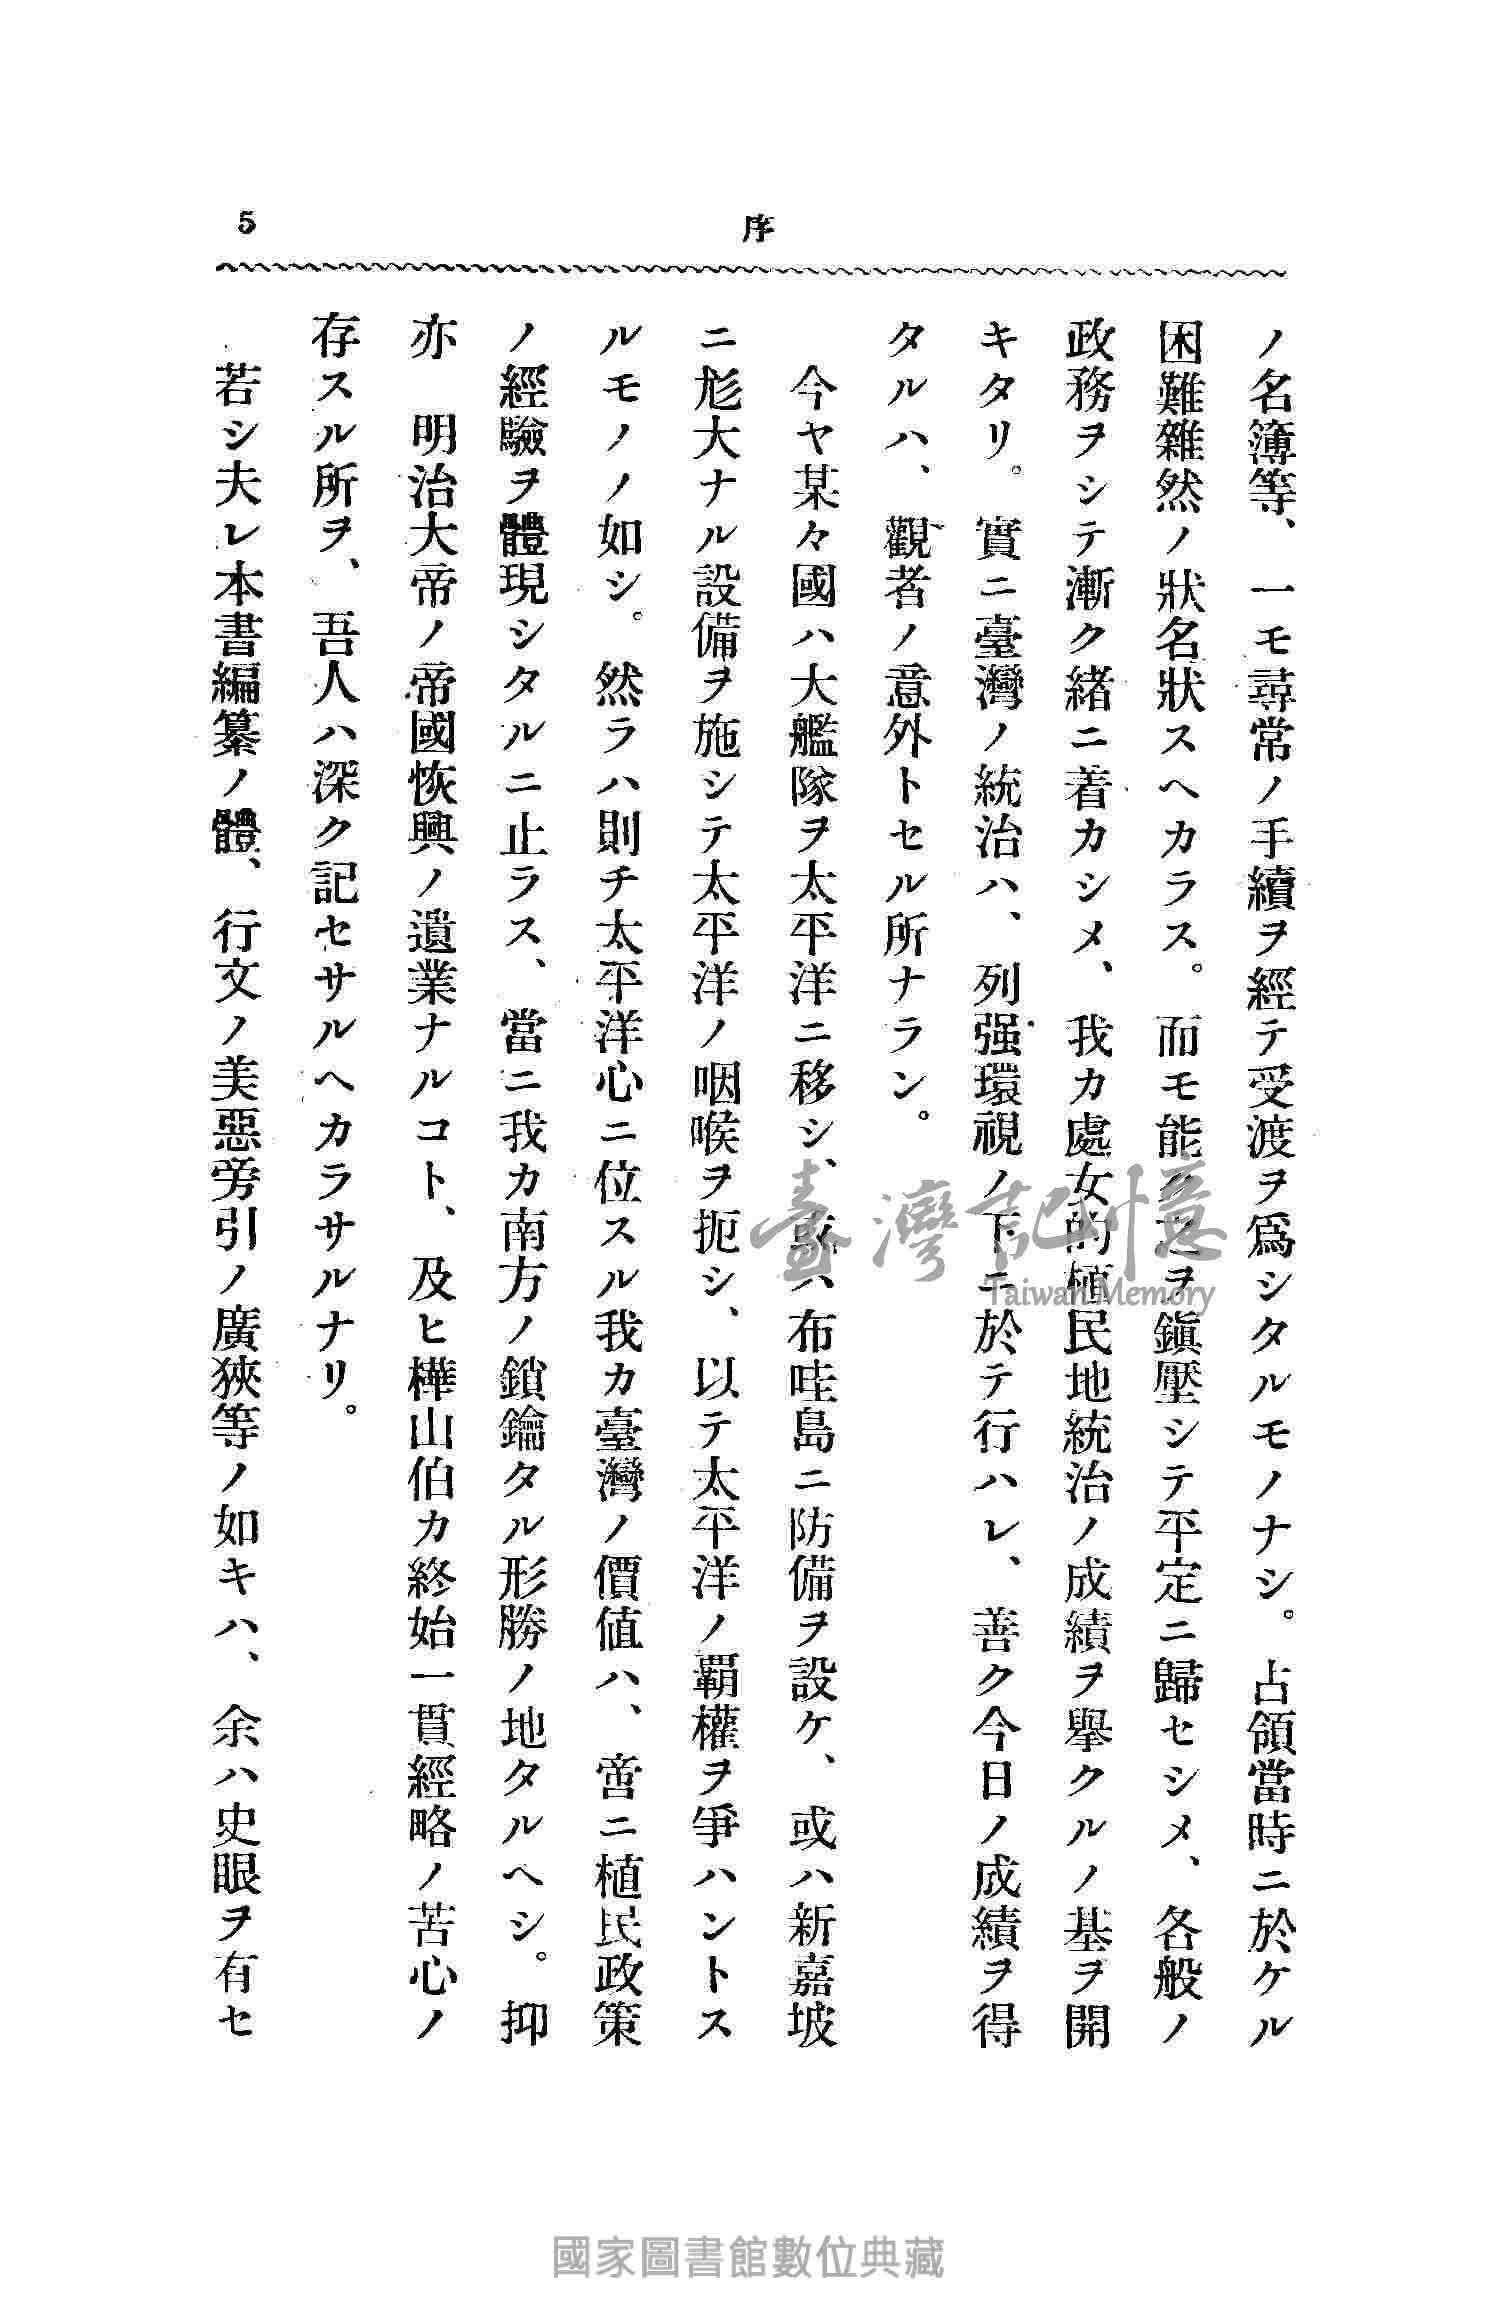 5
序
ノ名簿等、一モ尋常ノ手續ヲ經テ受渡ヲ爲シタルモノナシ。占領當時ニ於ケル
困難雜然ノ狀名狀スヘカラス。而モ能ク之ヲ鎭壓シテ平定ニ歸セシメ、各般ノ
政務ヲシテ漸ク緖ニ着カシメ、我カ處女的植民地統治ノ成績ヲ擧クルノ基ヲ開
キタリ。實ニ臺灣ノ統治ハ、列强環視ノ下ニ於テ行ハレ、善ク今日ノ成績ヲ得
タルハ、觀者ノ意外トセル所ナラン。
今ヤ某々國ハ大艦隊ヲ太平洋ニ移シ、或ハ布哇島ニ防備ヲ設ケ、或ハ新嘉坡
ニ尨大ナル設備ヲ施シテ太平洋ノ咽喉ヲ扼シ、以テ太平洋ノ覇權ヲ爭ハントス
ルモノノ如シ。然ラハ則チ太平洋心ニ位スル我カ臺灣ノ價値ハ、啻ニ植民政策
ノ經驗ヲ體現シタルニ止ラス、當ニ我カ南方ノ鎖鑰タル形勝ノ地タルヘシ。抑
亦　明治大帝ノ帝國恢興ノ遺業ナルコト、及ヒ樺山伯カ終始一貫經略ノ苦心ノ
存スル所ヲ、吾人ハ深ク記セサルヘカラサルナリ。
若シ夫レ本書編纂ノ體、行文ノ美惡旁引ノ廣狹等ノ如キハ、余ハ史眼ヲ有セ
臺灣記憶
Taiwan Memory
國家圖書館數位典藏